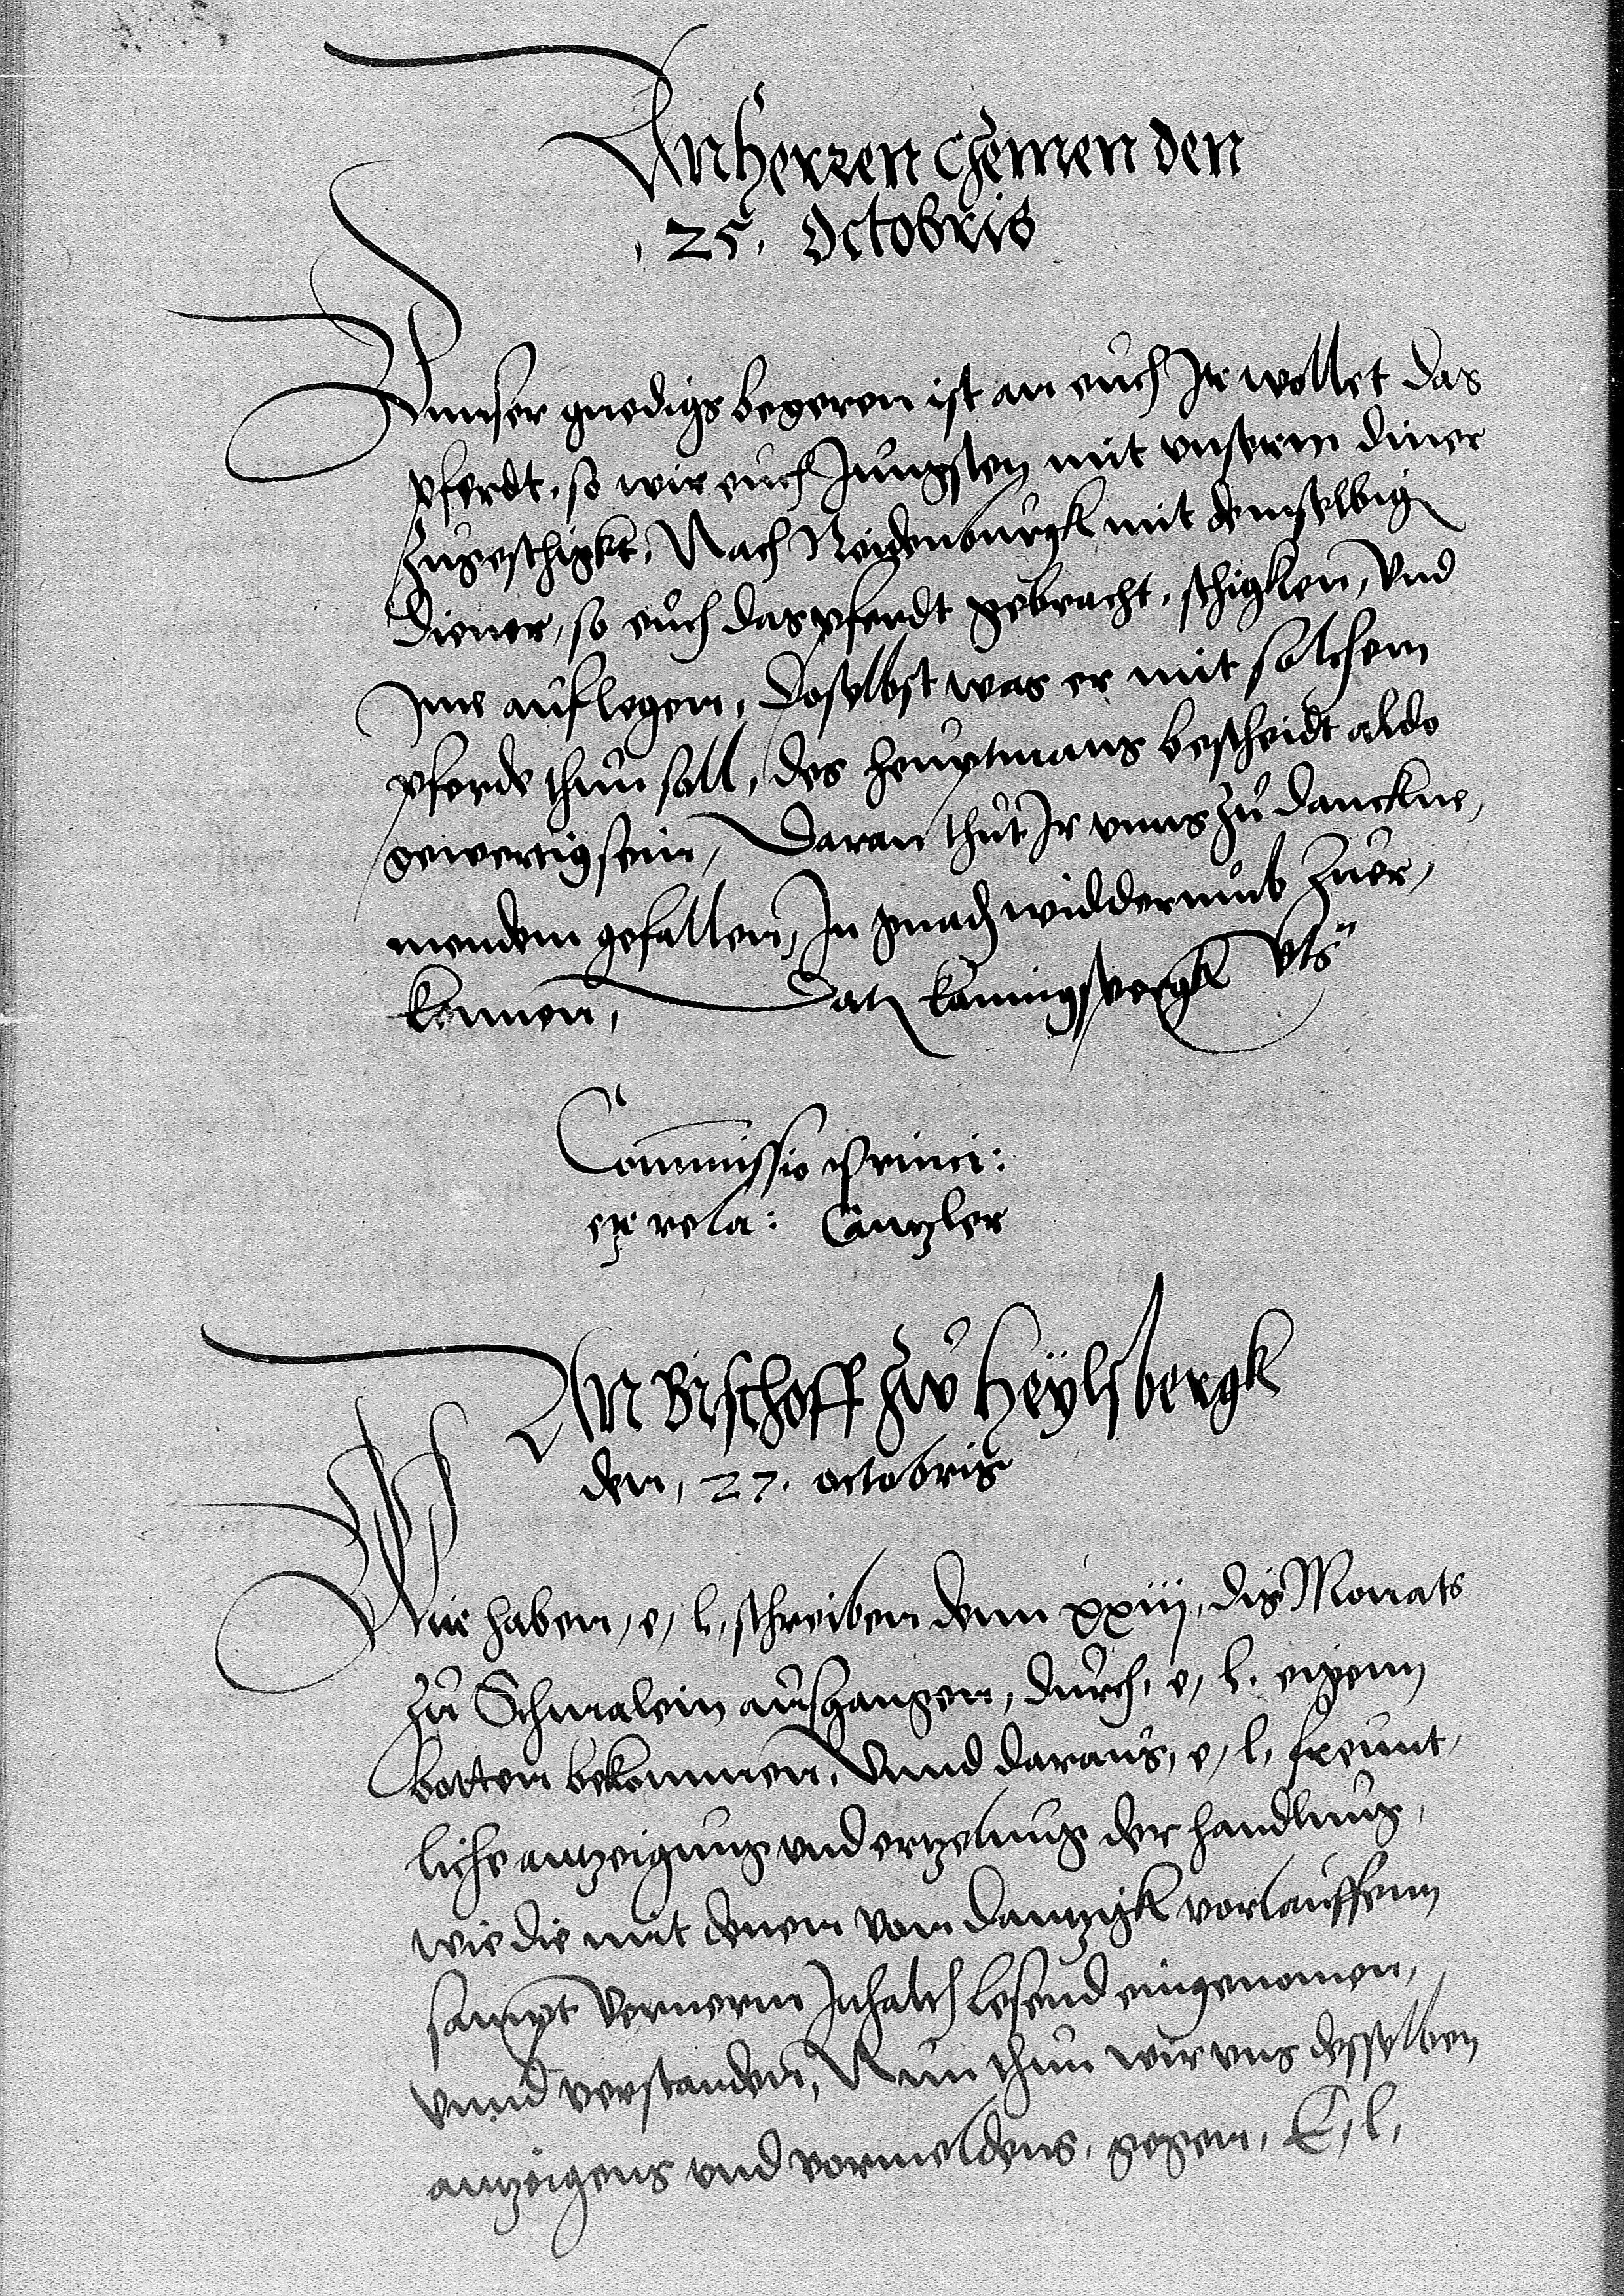 An Herren Chemen den
25. Octobris
Vnnser gnedigs begeren ist an euch Ir wollet das
pferdt, so wir euch Jungsten mit vnserm diner
zugeschigkt, Nach Neidenburgk mit demselbig
diener, so euch das pferdt gebracht, schigken, Vnd
Ime auflegen, doselbst was er mit solchem
pferde thun soll, des heuptmans bescheidt aldo
gewertig sein, Daran thut Ir vnns zu danckne,
mendem gefallen, In gnad widderumb zuer,
kennen, Dat konnigspergk vts
Commissio Princi:
ex rela: Cantzler
An Bischoff zw Heylsbergk
den, 27. octobris
Wir haben, e, l, schreiben denn xxiij, dis Monats
zu Schmalein ausgangen, durch, e, l, eigenn
botten bekommen, Vnnd daraus, e, l, freunt,
liche antzeigung vnd ertzelung der handlung,
wie die mit denen von Dantzigk vorlauffenn
sampt Vernerm Inhalth lesend eingenomen,
Vnnd verstanden, Nun thun wir vns desselben
antzeigens vnd vormeldens, gegen, E, l,